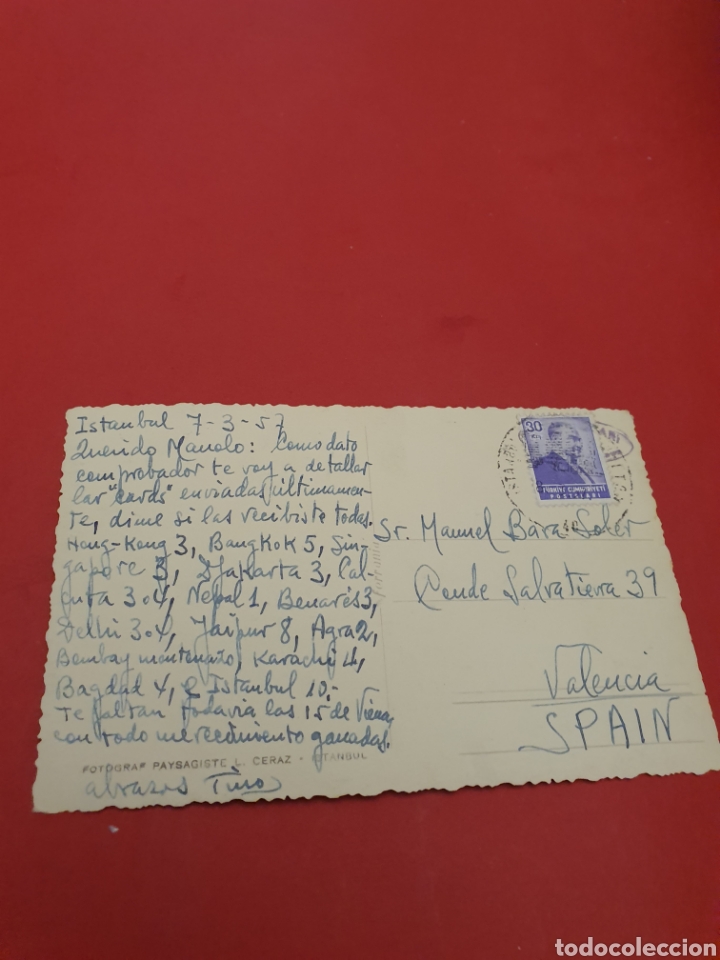 Istanbul 7-3-57
Querido Manolo: Como dato
comprobador te voy a detallar
las "cards" enviadas últimamen-
te, dime si las recibiste todas.
Hong-Kong 3, Bangkok 5, Sin-
gapore 3, Djakarta 3, Cal-
cuta 3 o 4, Nepal 1, Benarés 3,
Delhi 3 o 4, Jaipur 8, Agra 2,
Bombay, Karachi 4,
Bagdad 4, e Istanbul 10.-
Te faltan todavia las 15 de Viena
con todo merecimiento ganadas.
FOTOGRAF PAYSAGISTE L. CERAZ - ISTANBUL
abrazos
30
TÜRKİYE CUMHURİYETİ
POSTALARI
Sr. Manuel Bara Soler
Conde Salvatierra 39
Valencia
SPAIN
todocoleccion